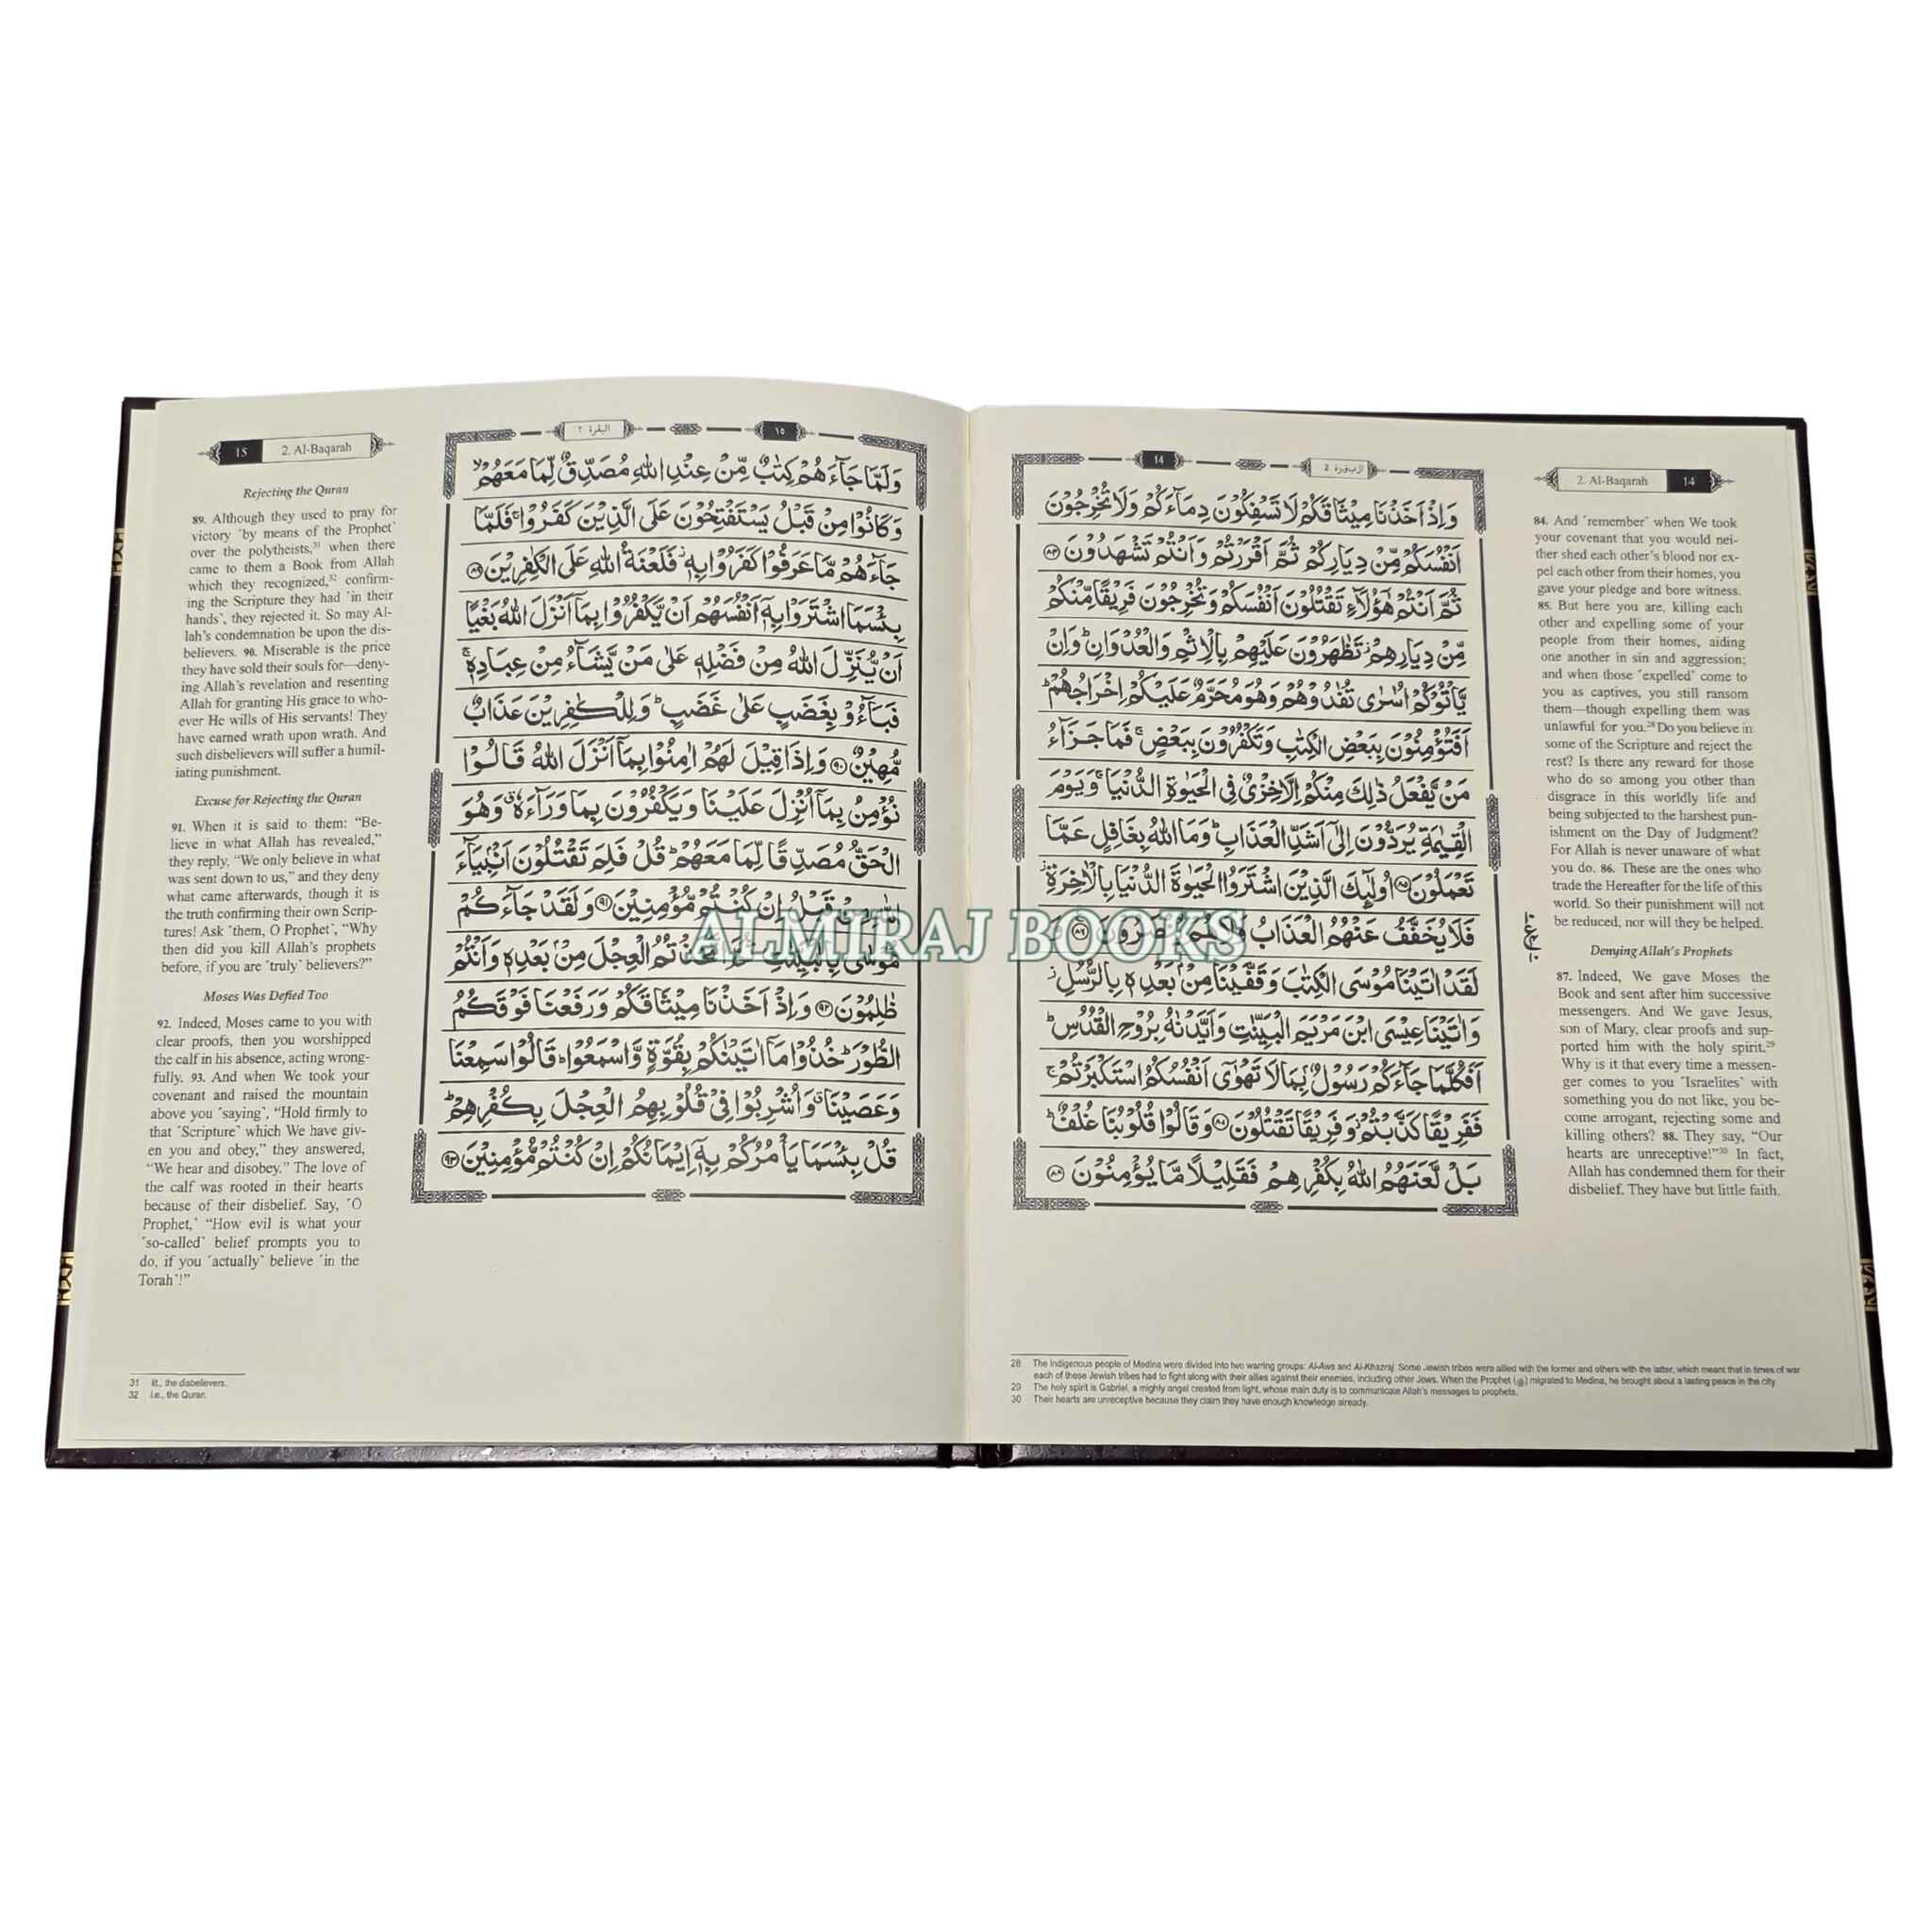 14
2. Al-Baqarah
2. Al-Baqarah 14
وَاِذْ اَخَذْنَا مِيْثَاقَكُمْ لَا تَسْفِكُوْنَ دِمَآءَكُمْ وَلَا تُخْرِجُوْنَ
اَنْفُسَكُمْ مِّنْ دِيَارِكُمْ ثُمَّ اَقْرَرْتُمْ وَاَنْتُمْ تَشْهَدُوْنَ ۝۸۴
ثُمَّ اَنْتُمْ هٰٓؤُلَآءِ تَقْتُلُوْنَ اَنْفُسَكُمْ وَتُخْرِجُوْنَ فَرِيْقًا مِّنْكُمْ
مِّنْ دِيَارِهِمْ ۫ تَظٰهَرُوْنَ عَلَيْهِمْ بِالْاِثْمِ وَالْعُدْوَانِ ؕ وَاِنْ
يَّاْتُوْكُمْ اُسٰرٰى تُفٰدُوْهُمْ وَهُوَ مُحَرَّمٌ عَلَيْكُمْ اِخْرَاجُهُمْ ؕ
اَفَتُؤْمِنُوْنَ بِبَعْضِ الْكِتٰبِ وَتَكْفُرُوْنَ بِبَعْضٍ ۚ فَمَا جَزَآءُ
مَنْ يَّفْعَلُ ذٰلِكَ مِنْكُمْ اِلَّا خِزْىٌ فِى الْحَيٰوةِ الدُّنْيَا ۚ وَيَوْمَ
الْقِيٰمَةِ يُرَدُّوْنَ اِلٰٓى اَشَدِّ الْعَذَابِ ؕ وَمَا اللّٰهُ بِغَافِلٍ عَمَّا
تَعْمَلُوْنَ ۝۸۵ اُولٰٓئِكَ الَّذِيْنَ اشْتَرَوُا الْحَيٰوةَ الدُّنْيَا بِالْاٰخِرَةِ ؗ
فَلَا يُخَفَّفُ عَنْهُمُ الْعَذَابُ وَلَا هُمْ يُنْصَرُوْنَ ۝۸۶
لَقَدْ اٰتَيْنَا مُوْسَى الْكِتٰبَ وَقَفَّيْنَا مِنْۢ بَعْدِهٖ بِالرُّسُلِ ؗ
وَاٰتَيْنَا عِيْسَى ابْنَ مَرْيَمَ الْبَيِّنٰتِ وَاَيَّدْنٰهُ بِرُوْحِ الْقُدُسِ ؕ
اَفَكُلَّمَا جَآءَكُمْ رَسُوْلٌۢ بِمَا لَا تَهْوٰٓى اَنْفُسُكُمُ اسْتَكْبَرْتُمْ ۚ
فَفَرِيْقًا كَذَّبْتُمْ ؗ وَفَرِيْقًا تَقْتُلُوْنَ ۝۸۷ وَقَالُوْا قُلُوْبُنَا غُلْفٌ ؕ
بَلْ لَّعَنَهُمُ اللّٰهُ بِكُفْرِهِمْ فَقَلِيْلًا مَّا يُؤْمِنُوْنَ ۝۸۸
84. And ˹remember˺ when We took
your covenant that you would nei-
ther shed each other's blood nor ex-
pel each other from their homes, you
gave your pledge and bore witness.
85. But here you are, killing each
other and expelling some of your
people from their homes, aiding
one another in sin and aggression;
and when those ˹expelled˺ come to
you as captives, you still ransom
them—though expelling them was
unlawful for you.28 Do you believe in
some of the Scripture and reject the
rest? Is there any reward for those
who do so among you other than
disgrace in this worldly life and
being subjected to the harshest pun-
ishment on the Day of Judgment?
For Allah is never unaware of what
you do. 86. These are the ones who
trade the Hereafter for the life of this
world. So their punishment will not
be reduced, nor will they be helped.
Denying Allah's Prophets
87. Indeed, We gave Moses the
Book and sent after him successive
messengers. And We gave Jesus,
son of Mary, clear proofs and sup-
ported him with the holy spirit.29
Why is it that every time a messen-
ger comes to you ˹Israelites˺ with
something you do not like, you be-
come arrogant, rejecting some and
killing others? 88. They say, “Our
hearts are unreceptive!”30 In fact,
Allah has condemned them for their
disbelief. They have but little faith.
28 The Indigenous people of Medina were divided into two warring groups: Al-Aws and Al-Khazraj. Some Jewish tribes were allied with the former and others with the latter, which meant that in times of war
each of these Jewish tribes had to fight along with their allies against their enemies, including other Jews. When the Prophet (ﷺ) migrated to Medina, he brought about a lasting peace in the city.
29 The holy spirit is Gabriel, a mighty angel created from light, whose main duty is to communicate Allah's messages to prophets.
30 Their hearts are unreceptive because they claim they have enough knowledge already.
15 2. Al-Baqarah
البقرة ٢
١٥
وَلَمَّا جَآءَهُمْ كِتٰبٌ مِّنْ عِنْدِ اللّٰهِ مُصَدِّقٌ لِّمَا مَعَهُمْ ۙ
وَكَانُوْا مِنْ قَبْلُ يَسْتَفْتِحُوْنَ عَلَى الَّذِيْنَ كَفَرُوْا ۚ فَلَمَّا
جَآءَهُمْ مَّا عَرَفُوْا كَفَرُوْا بِهٖ ؗ فَلَعْنَةُ اللّٰهِ عَلَى الْكٰفِرِيْنَ ۝۸۹
بِئْسَمَا اشْتَرَوْا بِهٖٓ اَنْفُسَهُمْ اَنْ يَّكْفُرُوْا بِمَآ اَنْزَلَ اللّٰهُ بَغْيًا
اَنْ يُّنَزِّلَ اللّٰهُ مِنْ فَضْلِهٖ عَلٰى مَنْ يَّشَآءُ مِنْ عِبَادِهٖ ۚ
فَبَآءُوْ بِغَضَبٍ عَلٰى غَضَبٍ ؕ وَلِلْكٰفِرِيْنَ عَذَابٌ
مُّهِيْنٌ ۝۹۰ وَاِذَا قِيْلَ لَهُمْ اٰمِنُوْا بِمَآ اَنْزَلَ اللّٰهُ قَالُوْا
نُؤْمِنُ بِمَآ اُنْزِلَ عَلَيْنَا وَيَكْفُرُوْنَ بِمَا وَرَآءَهٗ ۗ وَهُوَ
الْحَقُّ مُصَدِّقًا لِّمَا مَعَهُمْ ؕ قُلْ فَلِمَ تَقْتُلُوْنَ اَنْۢبِيَآءَ
اللّٰهِ مِنْ قَبْلُ اِنْ كُنْتُمْ مُّؤْمِنِيْنَ ۝۹۱ وَلَقَدْ جَآءَكُمْ
مُّوْسٰى بِالْبَيِّنٰتِ ثُمَّ اتَّخَذْتُمُ الْعِجْلَ مِنْۢ بَعْدِهٖ وَاَنْتُمْ
ظٰلِمُوْنَ ۝۹۲ وَاِذْ اَخَذْنَا مِيْثَاقَكُمْ وَرَفَعْنَا فَوْقَكُمُ
الطُّوْرَ ؕ خُذُوْا مَآ اٰتَيْنٰكُمْ بِقُوَّةٍ وَّاسْمَعُوْا ؕ قَالُوْا سَمِعْنَا
وَعَصَيْنَا ۗ وَاُشْرِبُوْا فِىْ قُلُوْبِهِمُ الْعِجْلَ بِكُفْرِهِمْ ؕ
قُلْ بِئْسَمَا يَاْمُرُكُمْ بِهٖٓ اِيْمَانُكُمْ اِنْ كُنْتُمْ مُّؤْمِنِيْنَ ۝۹۳
Rejecting the Quran
89. Although they used to pray for
victory ˹by means of the Prophet˺
over the polytheists,31 when there
came to them a Book from Allah
which they recognized,32 confirm-
ing the Scripture they had ˹in their
hands˺, they rejected it. So may Al-
lah's condemnation be upon the dis-
believers. 90. Miserable is the price
they have sold their souls for—deny-
ing Allah's revelation and resenting
Allah for granting His grace to who-
ever He wills of His servants! They
have earned wrath upon wrath. And
such disbelievers will suffer a humil-
iating punishment.
Excuse for Rejecting the Quran
91. When it is said to them: “Be-
lieve in what Allah has revealed,”
they reply, “We only believe in what
was sent down to us,” and they deny
what came afterwards, though it is
the truth confirming their own Scrip-
tures! Ask ˹them, O Prophet˺, “Why
then did you kill Allah's prophets
before, if you are ˹truly˺ believers?”
Moses Was Defied Too
92. Indeed, Moses came to you with
clear proofs, then you worshipped
the calf in his absence, acting wrong-
fully. 93. And when We took your
covenant and raised the mountain
above you ˹saying˺, “Hold firmly to
that ˹Scripture˺ which We have giv-
en you and obey,” they answered,
“We hear and disobey.” The love of
the calf was rooted in their hearts
because of their disbelief. Say, ˹O
Prophet,˺ “How evil is what your
˹so-called˺ belief prompts you to
do, if you ˹actually˺ believe ˹in the
Torah˺!”
31 lit., the disbelievers.
32 i.e., the Quran.
ALMIRAJ BOOKS